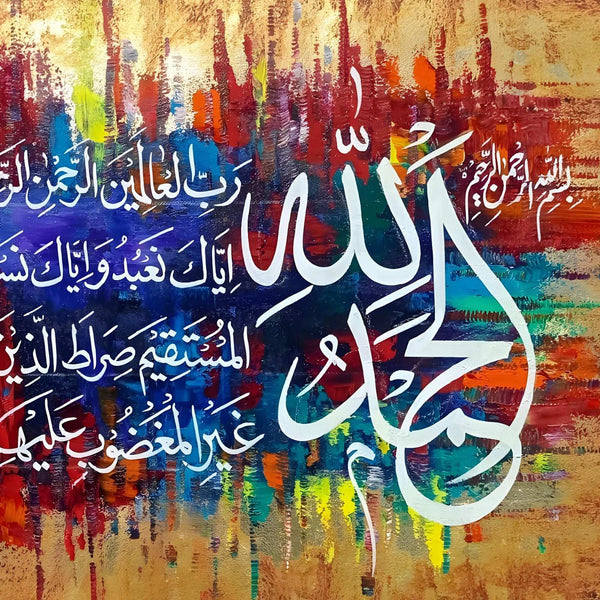 بِسْمِ اللّٰهِ الرَّحْمٰنِ الرَّحِيْمِ
الْحَمْدُ لِلّٰهِ
رَبِّ الْعَالَمِيْنَ الرَّحْمٰنِ
اِيَّاكَ نَعْبُدُ وَاِيَّاكَ
الْمُسْتَقِيْمَ صِرَاطَ الَّذِيْنَ
غَيْرِ الْمَغْضُوْبِ عَلَيْهِمْ